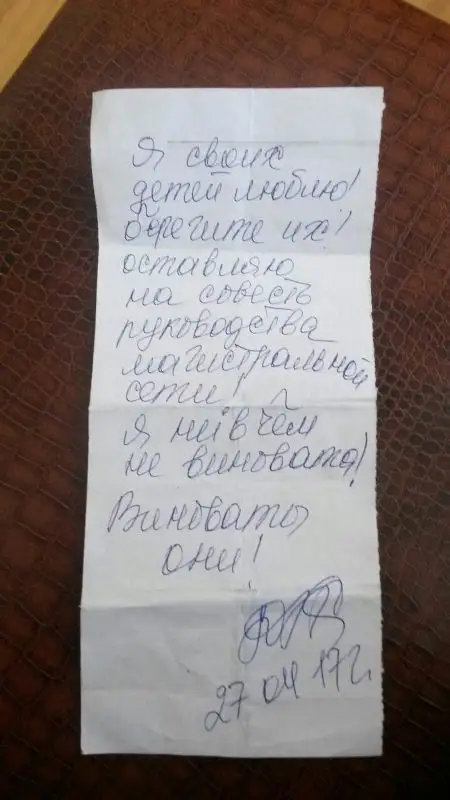 Я своих
детей люблю!
берегите их!
оставляю
на совесть
руководства
магистральной
сети!
я ни в чём
не виновата!
Виноваты
они!
27 04 17 г.